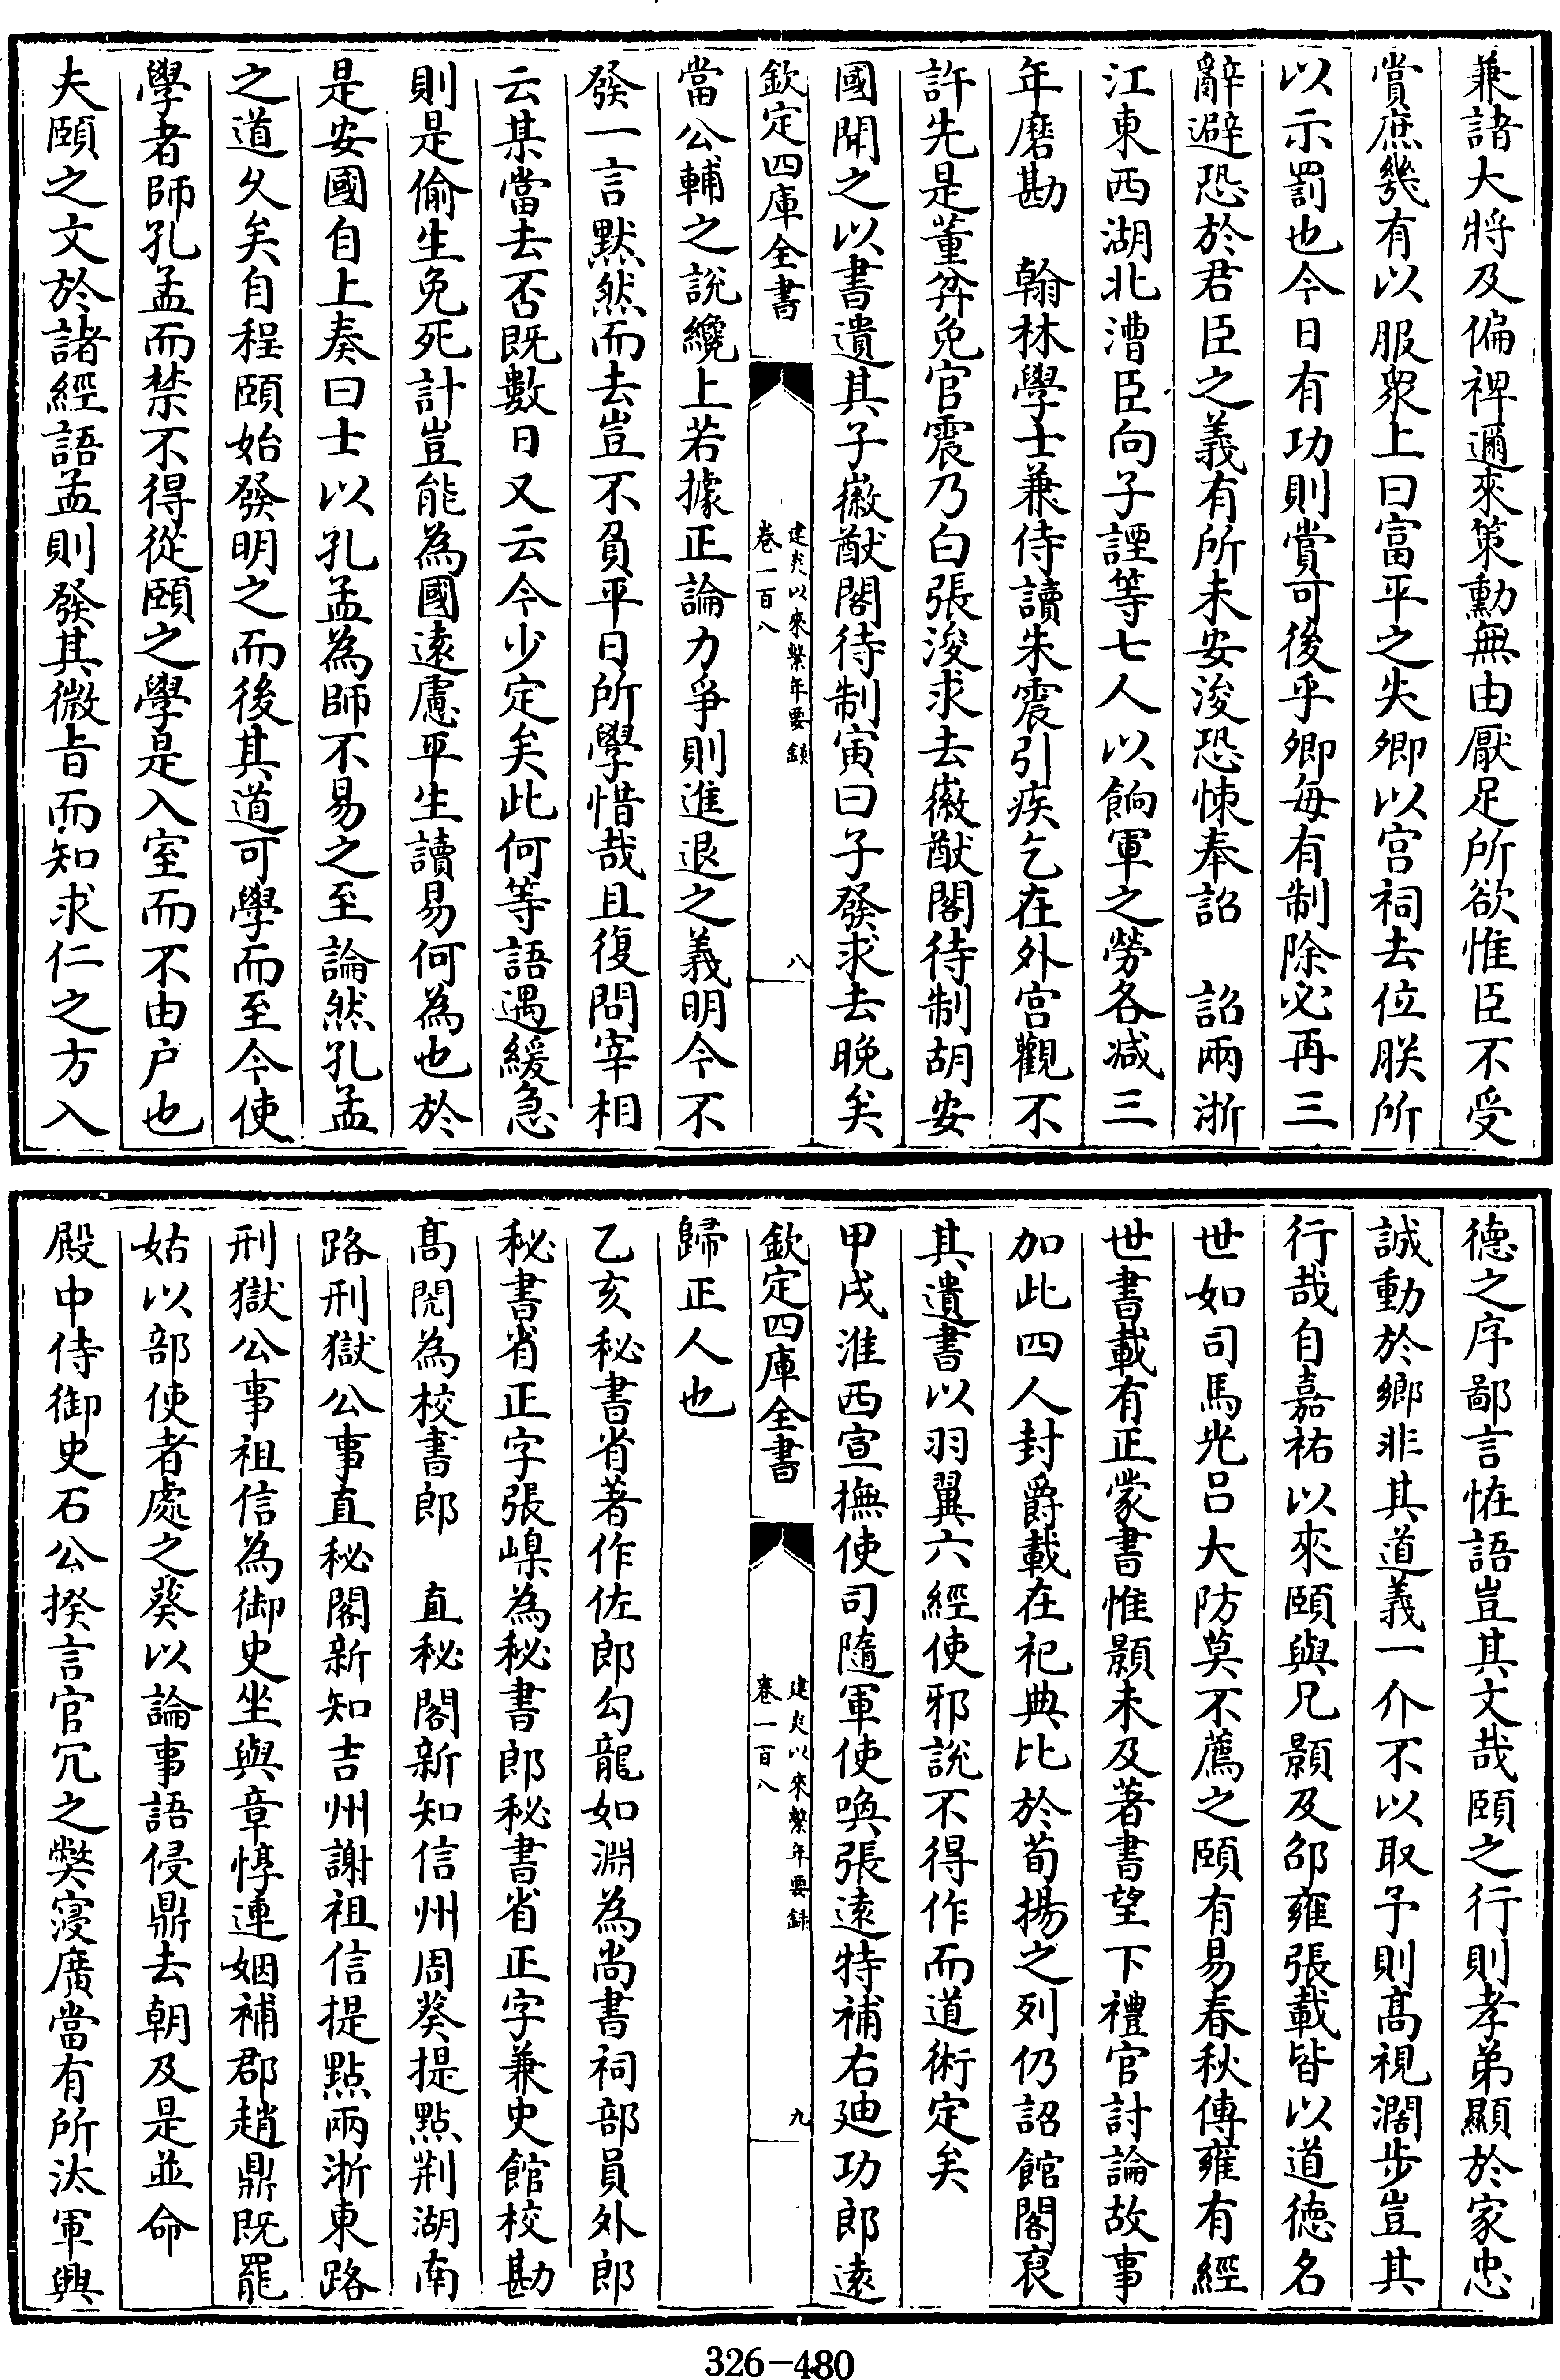 兼諸大將及偏裨邇來策勳無由厭足所欲惟臣不受
賞庶幾有以服衆上曰富平之失卿以宫祠去位朕所
以示罰也今日有功則賞可後乎卿每有制除必再三
辭避恐於君臣之義有所未安浚恐悚奉詔　詔兩浙
江東西湖北漕臣向子諲等七人以餉軍之勞各減三
年磨勘　翰林學士兼侍讀朱震引疾乞在外宫觀不
許先是董弅免官震乃白張浚求去徽猷閣待制胡安
國聞之以書遺其子徽猷閣待制寅曰子發求去晚矣
欽定四庫全書
建炎以來繫年要録
卷一百八
八
當公輔之說纔上若據正論力爭則進退之義明今不
發一言黙然而去豈不負平日所學惜哉且復問宰相
云某當去否既數日又云今少定矣此何等語遇緩急
則是偷生免死計豈能為國逺慮平生讀易何為也於
是安國自上奏曰士以孔孟為師不易之至論然孔孟
之道乆矣自程頤始發明之而後其道可學而至今使
學者師孔孟而禁不得從頤之學是入室而不由户也
夫頤之文於諸經語孟則發其微旨而知求仁之方入
徳之序鄙言恠語豈其文哉頤之行則孝弟顯於家忠
誠動於鄉非其道義一介不以取予則髙視濶步豈其
行哉自嘉祐以來頤與兄顥及邵雍張載皆以道徳名
世如司馬光吕大防莫不薦之頤有易春秋傳雍有經
世書載有正蒙書惟顥未及著書望下禮官討論故事
加此四人封爵載在祀典比於荀揚之列仍詔館閣裒
其遺書以羽翼六經使邪說不得作而道術定矣
甲戌淮西宣撫使司隨軍使喚張逺特補右廸功郎逺
欽定四庫全書
建炎以來繫年要録
卷一百八
九
歸正人也
乙亥秘書省著作佐郎勾龍如淵為尚書祠部員外郎
秘書省正字張嵲為秘書郎秘書省正字兼史館校勘
髙閌為校書郎　直秘閣新知信州周葵提點荆湖南
路刑獄公事直秘閣新知吉州謝祖信提點兩浙東路
刑獄公事祖信為御史坐與章惇連姻補郡趙鼎既罷
姑以部使者處之葵以論事語侵鼎去朝及是並命
殿中侍御史石公揆言官冗之弊寖廣當有所汰軍興
326-480